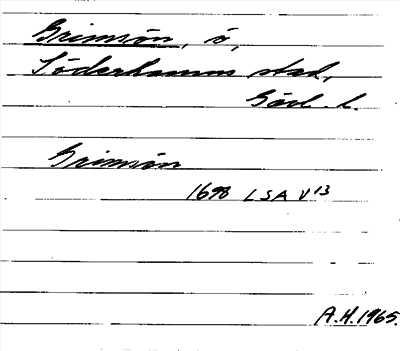 Grimsön, ö,
Söderhamns stad,
Gävl. l.
Grimsön
1698 LSA V13
A.H. 1965.